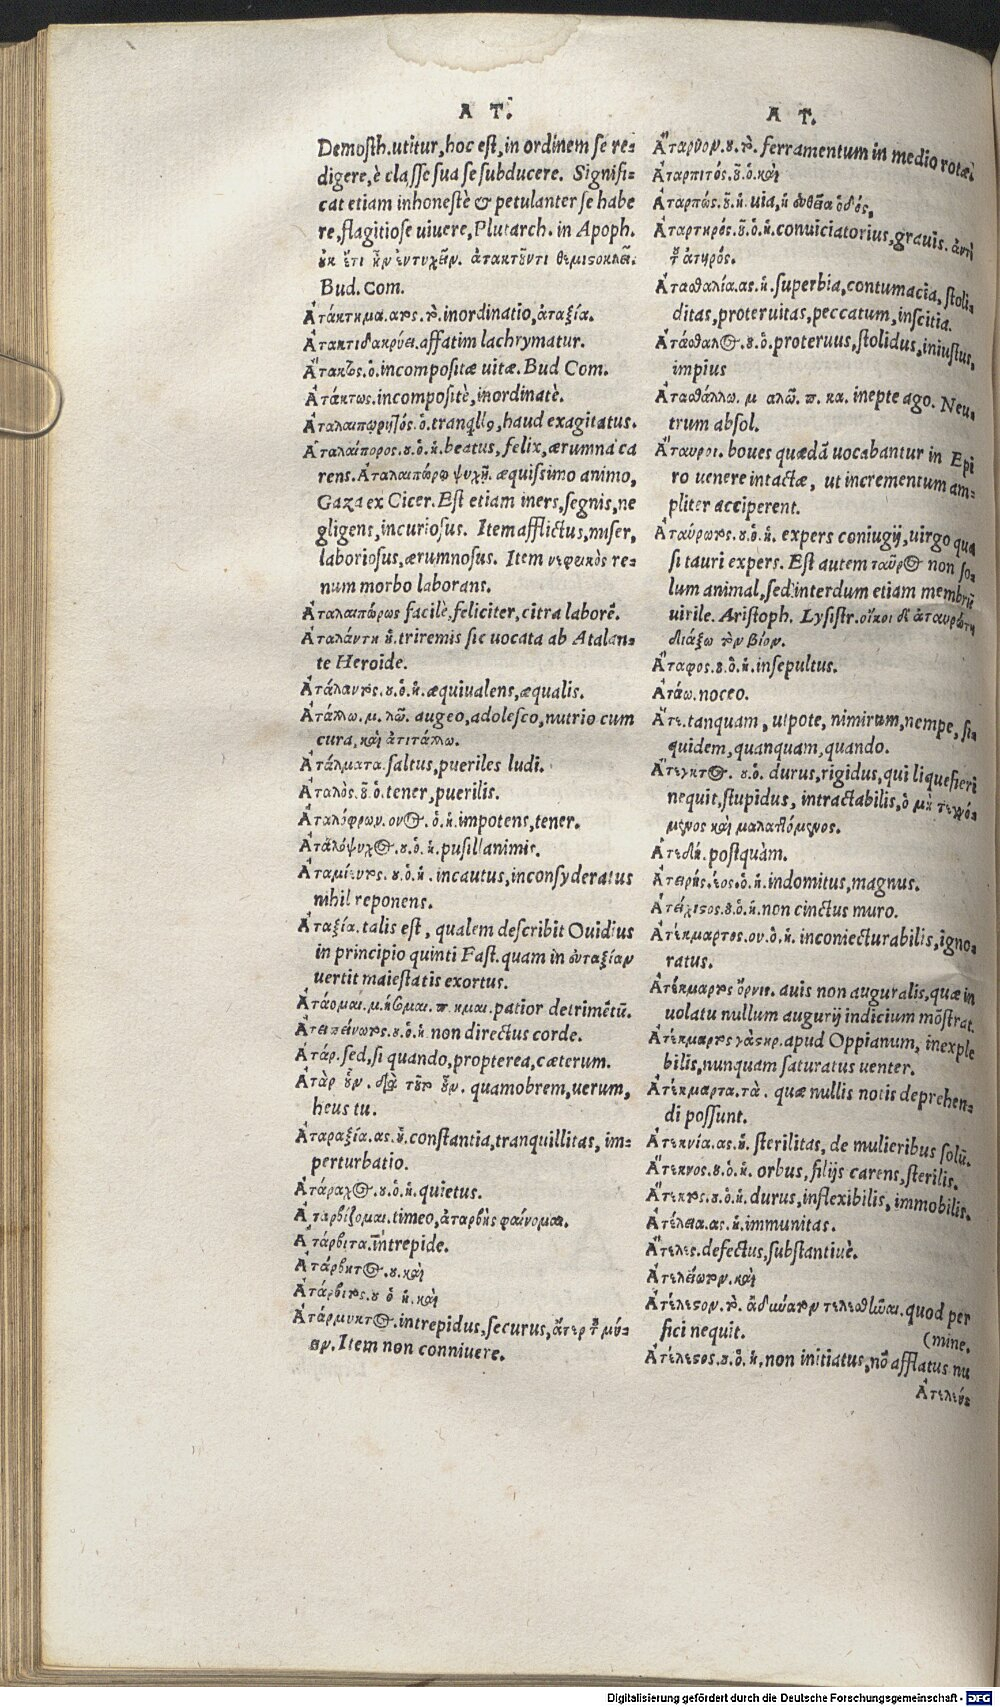 Α Τ.
Demosth.utitur,hoc est,in ordinem se re-
digere,è classe sua se subducere. Signifi-
cat etiam inhonestè & petulanter se habe
re,flagitiose uiuere,Plutarch. in Apoph.
οὐκ ἔτι ἦν ἐντυχεῖν. ἀτακτοῦντι θεμιστοκλεῖ.
Bud.Com.
Ἀτάκτημα.ατος.τὸ.inordinatio,ἀταξία.
Ἀτακτιδακρύει.affatim lachrymatur.
Ἄτακτος.ὁ.incompositæ uitæ. Bud Com.
Ἀτάκτως.incompositè,inordinatè.
haud exagitatus.
Ἀταλαίπορος.ου.ὁ.ἡ.beatus,felix,ærumna ca
rens.Ἀταλαιπώρῳ ψυχῇ. æquissimo animo,
Gaza ex Cicer.Est etiam iners,segnis,ne
gligens,incuriosus. Item afflictus,miser,
laboriosus,ærumnosus. Item re-
num morbo laborans.
Ἀταλαιπώρως facilè,feliciter,citra laborē.
Ἀταλάντη ἡ.triremis sic uocata ab Atalan-
te Heroide.
Ἀτάλαντος.ου.ὁ.ἡ.æquiualens,æqualis.
Ἀτάλλω.μ.λῶ. augeo,adolesco,nutrio cum
cura,καὶ ἀτιτάλλω.
Ἀτάλματα.saltus,pueriles ludi.
Ἀταλὸς.οῦ.ὁ.tener,puerilis.
Ἀταλόφρων.ονος.ὁ.ἡ.impotens,tener.
Ἀταλόψυχος.ου.ὁ.ἡ.pusillanimis.
Ἀταμίευτος.ου.ὁ.ἡ.incautus,inconsyderatus
nihil reponens.
Ἀταξία.talis est, qualem describit Ouidius
in principio quinti Fast.quam in εὐταξίαν
uertit maiestatis exortus.
Ἀτάομαι. patior detrimētū.
non directus corde.
Ἀτάρ.sed,si quando,propterea,cæterum.
Ἀτὰρ οὖν. διὰ τοῦτο οὖν. quamobrem,uerum,
heus tu.
Ἀταραξία.ας.ἡ.constantia,tranquillitas, im-
perturbatio.
Ἀτάραχος.ου.ὁ.ἡ.quietus.
Ἀταρβίζομαι.timeo,ἀταρβὴς φαίνομαι.
Ἀτάρβιτα.intrepide.
Ἀτάρβητος.ου.καὶ
Ἀτάρβιτος.ου ὁ ἡ.καὶ
Ἀτάρμυκτος.intrepidus,securus,ἄτερ τοῦ μύ-
ειν.Item non conniuere.
Α Τ.
Ἄταρθον.ου.τὸ. ferramentum in medio rotæ.
Ἀταρπιτός.οῦ.ὁ.καὶ
Ἀταρπός.οῦ.ἡ.uia,ἡ εὐθεῖα ὁδός.
Ἀταρτηρός.οῦ.ὁ.ἡ.conuiciatorius,grauis. ἀντὶ
τοῦ ἀτηρός.
Ἀτασθαλία.ας.ἡ.superbia,contumacia, stoli-
ditas,proteruitas,peccatum,inscitia.
Ἀτάσθαλος.ου.ὁ.proteruus,stolidus,iniustus,
impius
Ἀτασθάλλω. μ αλῶ. π. κα. inepte ago. Neu-
trum absol.
Ἄταυροι. boues quædā uocabantur in Epi
ro uenere intactæ, ut incrementum am-
pliter acciperent.
Ἀταύρωτος.ου.ὁ.ἡ. expers coniugij,uirgo qua
si tauri expers. Est autem ταῦρος non so-
lum animal,sed interdum etiam membrū
uirile. Aristoph. Lysistr.οἴκοι δὲ ἀταυρώτη
διάξω τὸν βίον.
Ἄταφος.ου.ὁ.ἡ.insepultus.
Ἀτάω.noceo.
Ἅτε.tanquam, utpote, nimirum,nempe, si-
quidem,quanquam,quando.
Ἄτεγκτος. ου.ὁ. durus,rigidus,qui liquefieri
nequit,stupidus, intractabilis,ὁ μὴ τεγγό-
μενος καὶ μαλαττόμενος.
Ἀτεδή.postquàm.
Ἀτειρής.έος.ὁ.ἡ.indomitus,magnus.
Ἀτείχιστος.ου.ὁ.ἡ.non cinctus muro.
Ἀτέκμαρτος.ου.ὁ.ἡ. inconiecturabilis,igno-
ratus.
Ἀτέκμαρτος ὄρνις. auis non auguralis,quæ in
uolatu nullum augurij indicium mōstrat.
Ἀτέκμαρτος γαστήρ.apud Oppianum, inexple
bilis,nunquam saturatus uenter.
Ἀτέκμαρτα.τὰ. quæ nullis notis deprehen-
di possunt.
Ἀτεκνία.ας.ἡ. sterilitas, de mulieribus solū.
Ἄτεκνος.ου.ὁ.ἡ. orbus,filijs carens,sterilis.
ου.ὁ.ἡ.durus,inflexibilis, immobilis.
Ἀτέλεια.ας.ἡ.immunitas.
Ἄτελες.defectus,substantiuè.
Ἀτελείωτον.καὶ
Ἀτέλεστον.τὸ. ἀδύνατον τελεσθῆναι.quod per
fici nequit. (mine.
Ἀτέλεστος.ου.ὁ.ἡ.non initiatus,nō afflatus nu
Ἀτελεύ-
Digitalisierung gefördert durch die Deutsche Forschungsgemeinschaft - DFG